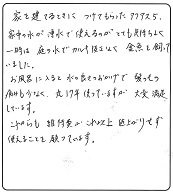 家を建てるときに つけてもらったアクアス5.
家中の水が浄水で使えるのがとても気持ちよく
一時は庭の水でカルキ抜きなく金魚も飼って
いました。
お風呂に入ると水の良さのおかげで髪っも
何もなく、丸17年使っていますが大変満足
しています。
これからも維持費がこれ以上値上がりせず
使えることを願っています。